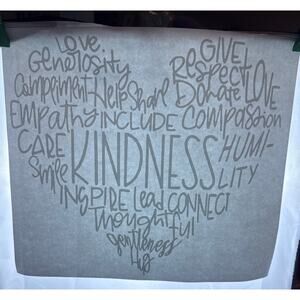 Love GIVE
Generosity Respect LOVE
Compliment Help Share Donate
Empathy INCLUDE Compassion
CARE KINDNESS HUMI-
Smile LITY
INSPIRE Lead CONNECT
Thoughtful
gentleness